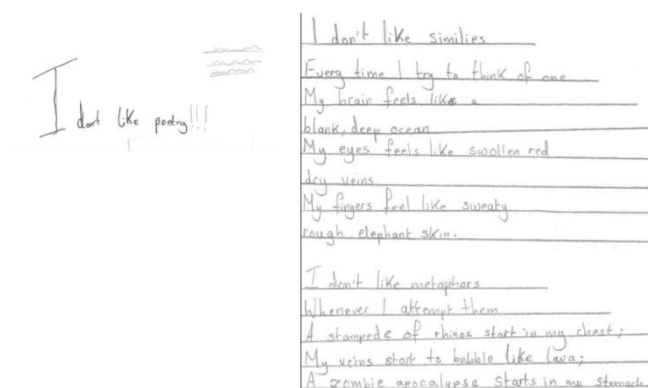 I dont like poetry!!!
I don't like similies
Every time I try to think of one
My brain feels like a
blank, deep ocean
My eyes feels like swollen red
dry veins
My fingers feel like sweaty
rough elephant skin.
I don't like metaphors
Whenever I attempt them
A stampede of rhinos start in my chest;
My veins start to bubble like lava;
A zombie apocalypse starts in my stomach